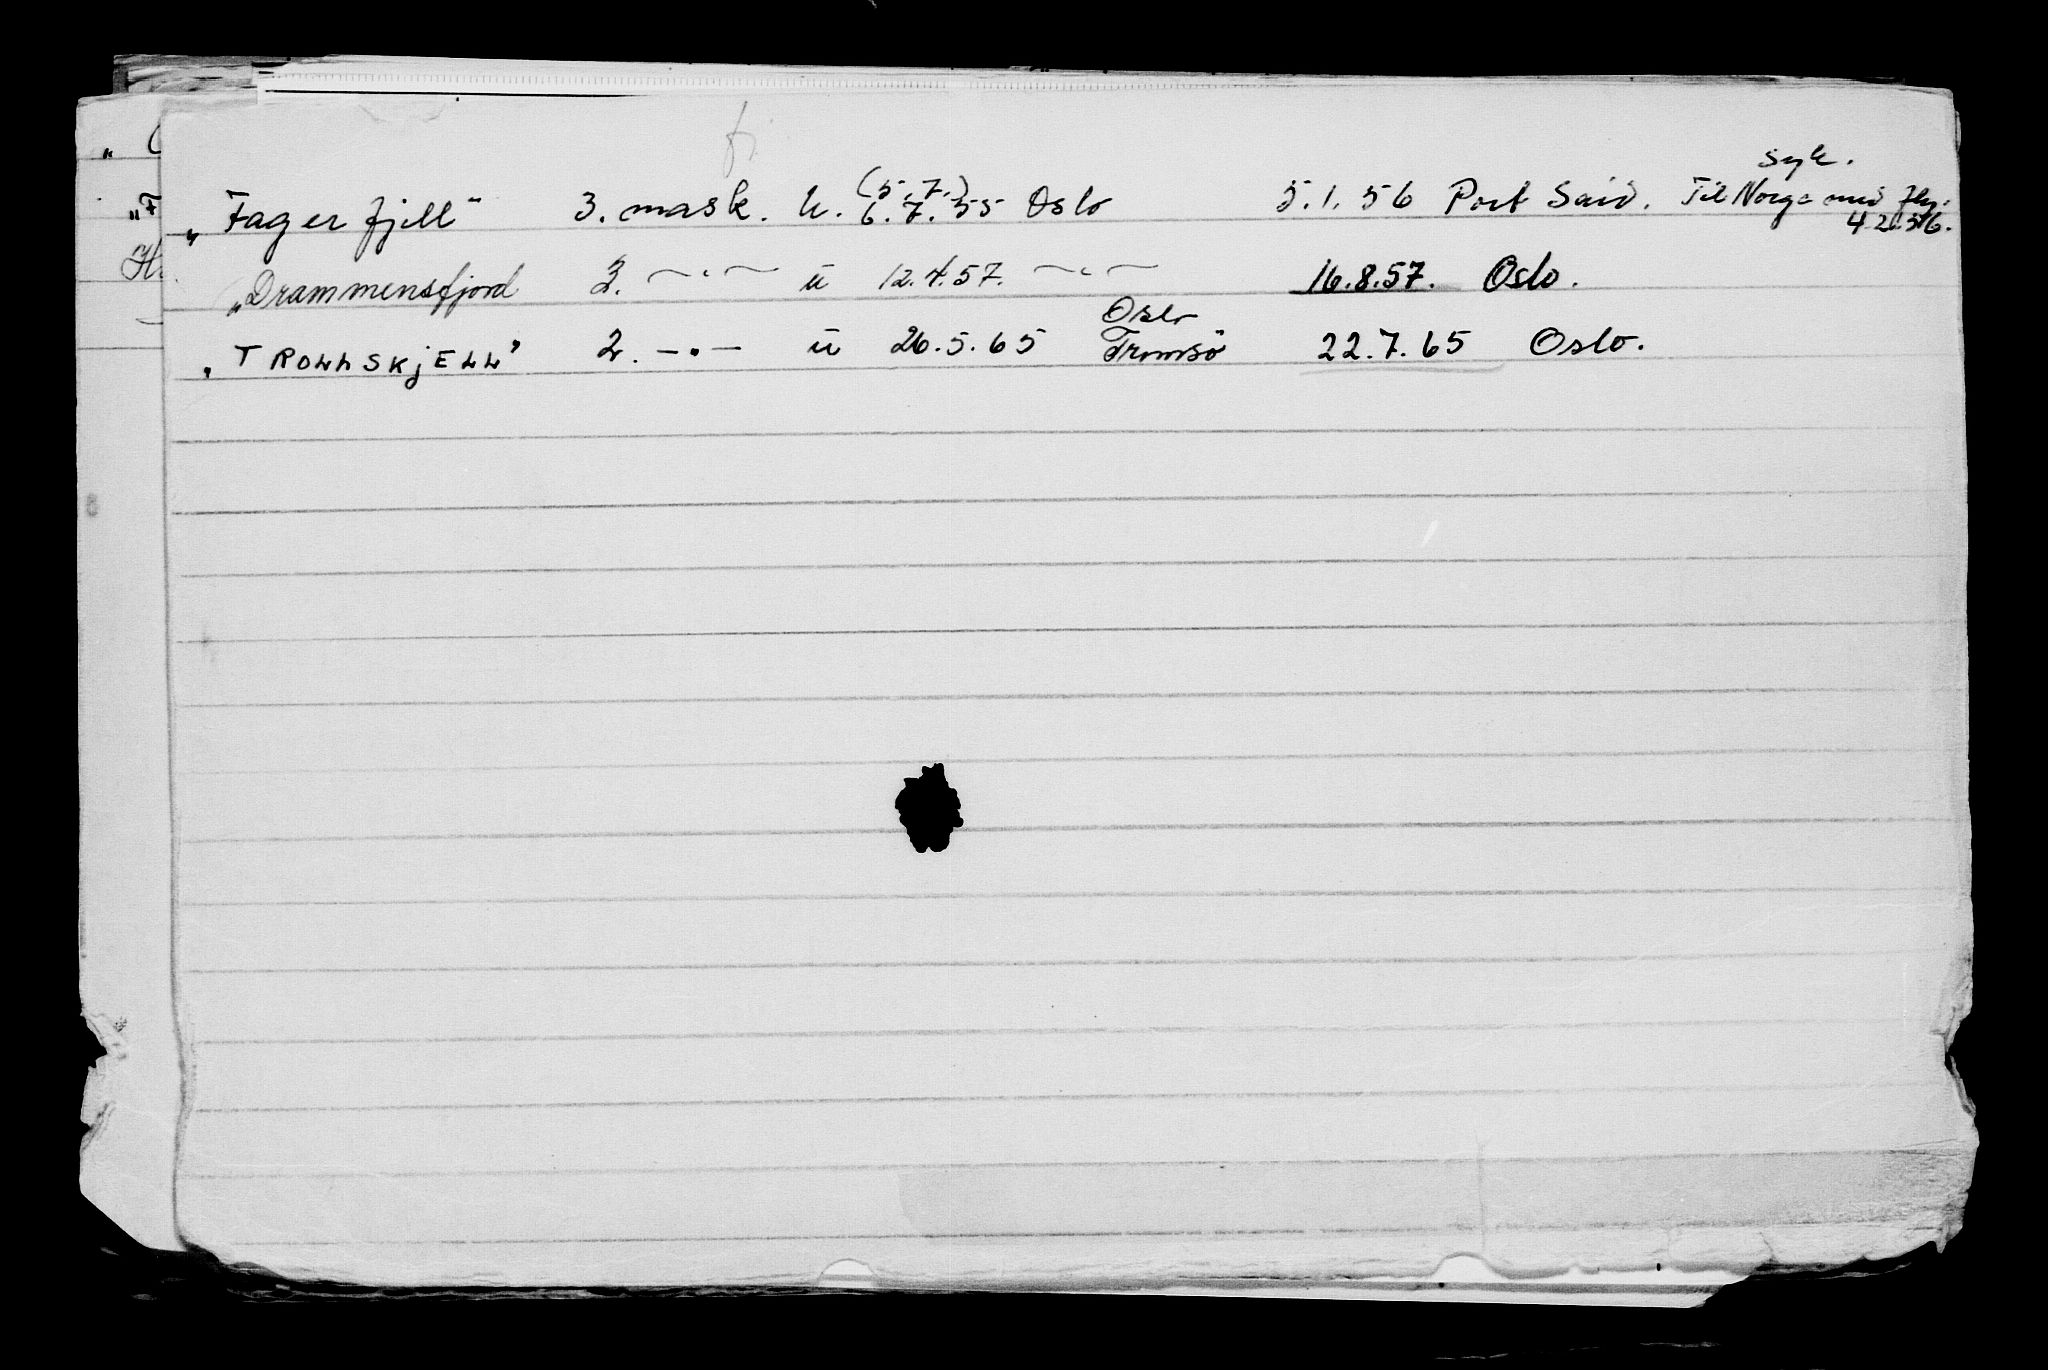 syk.
(5.7.)
„Fagerfjell" 3. mask. u. 6.7.55 Oslo 5.1.56 Port Said. Til Norge med fly.
4.2.56.
„Drammensfjord 2. —〃— u 12.4.57. —〃— 16.8.57. Oslo.
Oslo
„TROLLSKjELL" 2. —〃— u 26.5.65 Tromsö 22.7.65 Oslo.